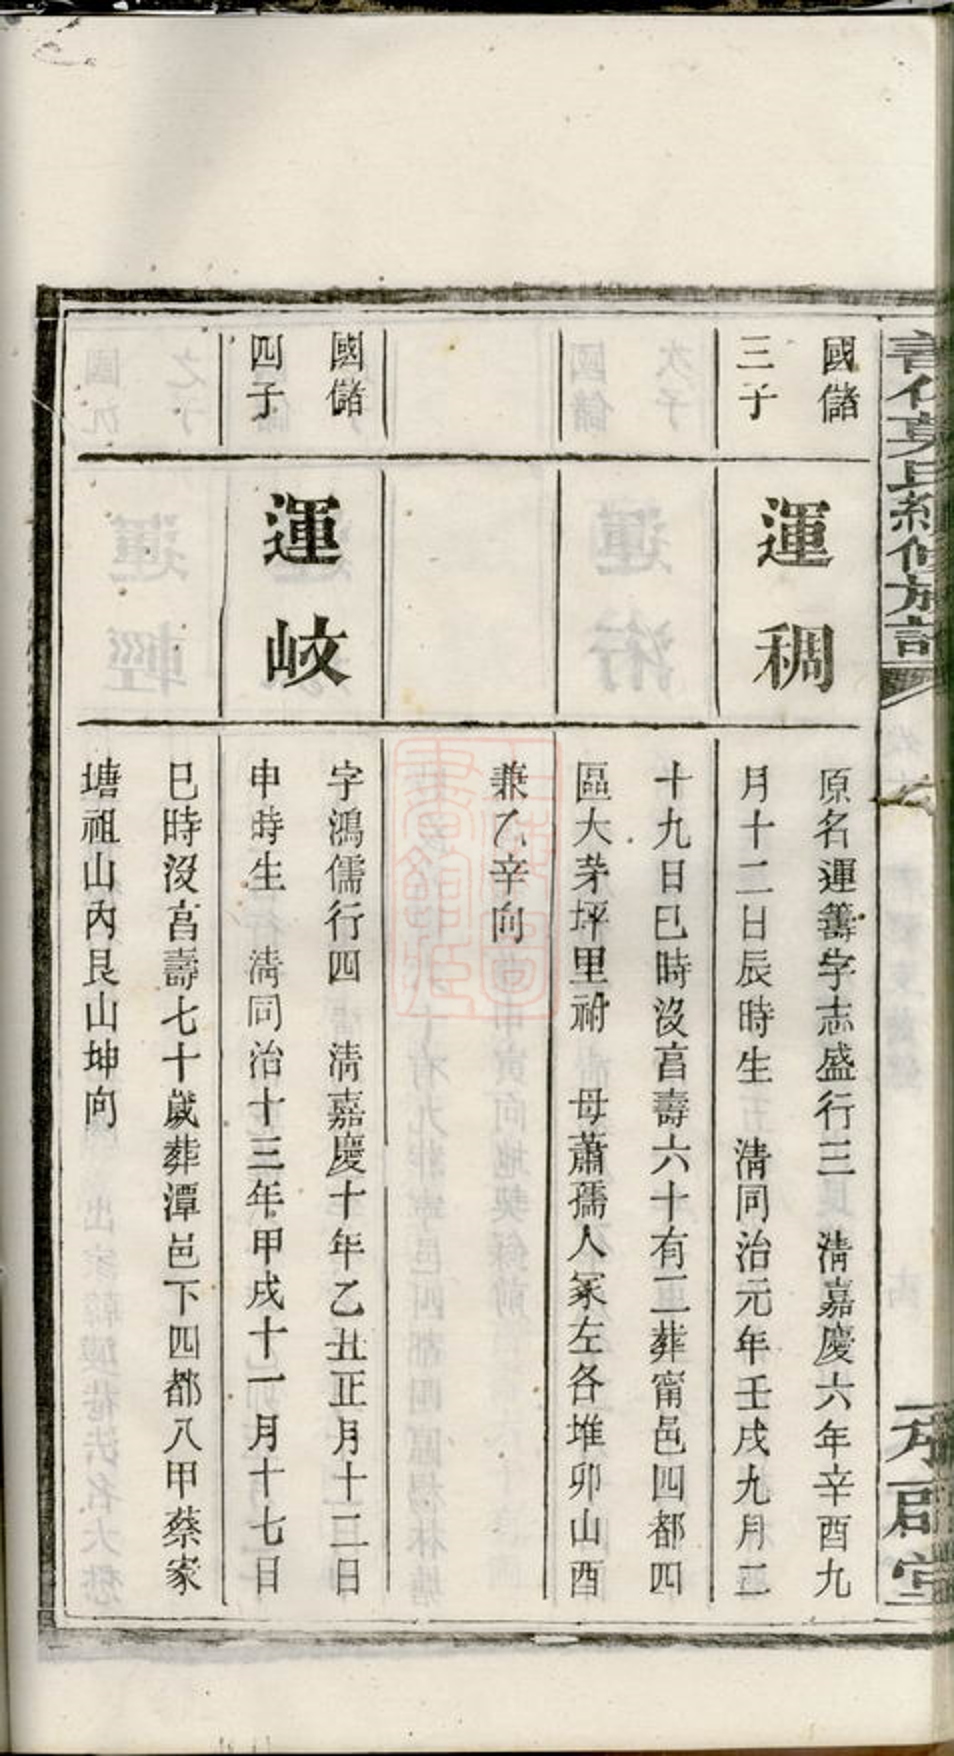 國儲
三子
運稠
原名運籌字志盛行三　清嘉慶六年辛酉九
月十二日辰時生　清同治元年壬戌九月二
十九日巳時沒享壽六十有二葬甯邑四都四
區大茅坪里祔　母蕭孺人冢左各堆卯山酉
兼乙辛向
國儲
四子
運岐
字鴻儒行四　清嘉慶十年乙丑正月十二日
申時生　清同治十三年甲戌十一月十七日
巳時沒享壽七十歲葬潭邑下四都八甲蔡家
塘祖山內艮山坤向